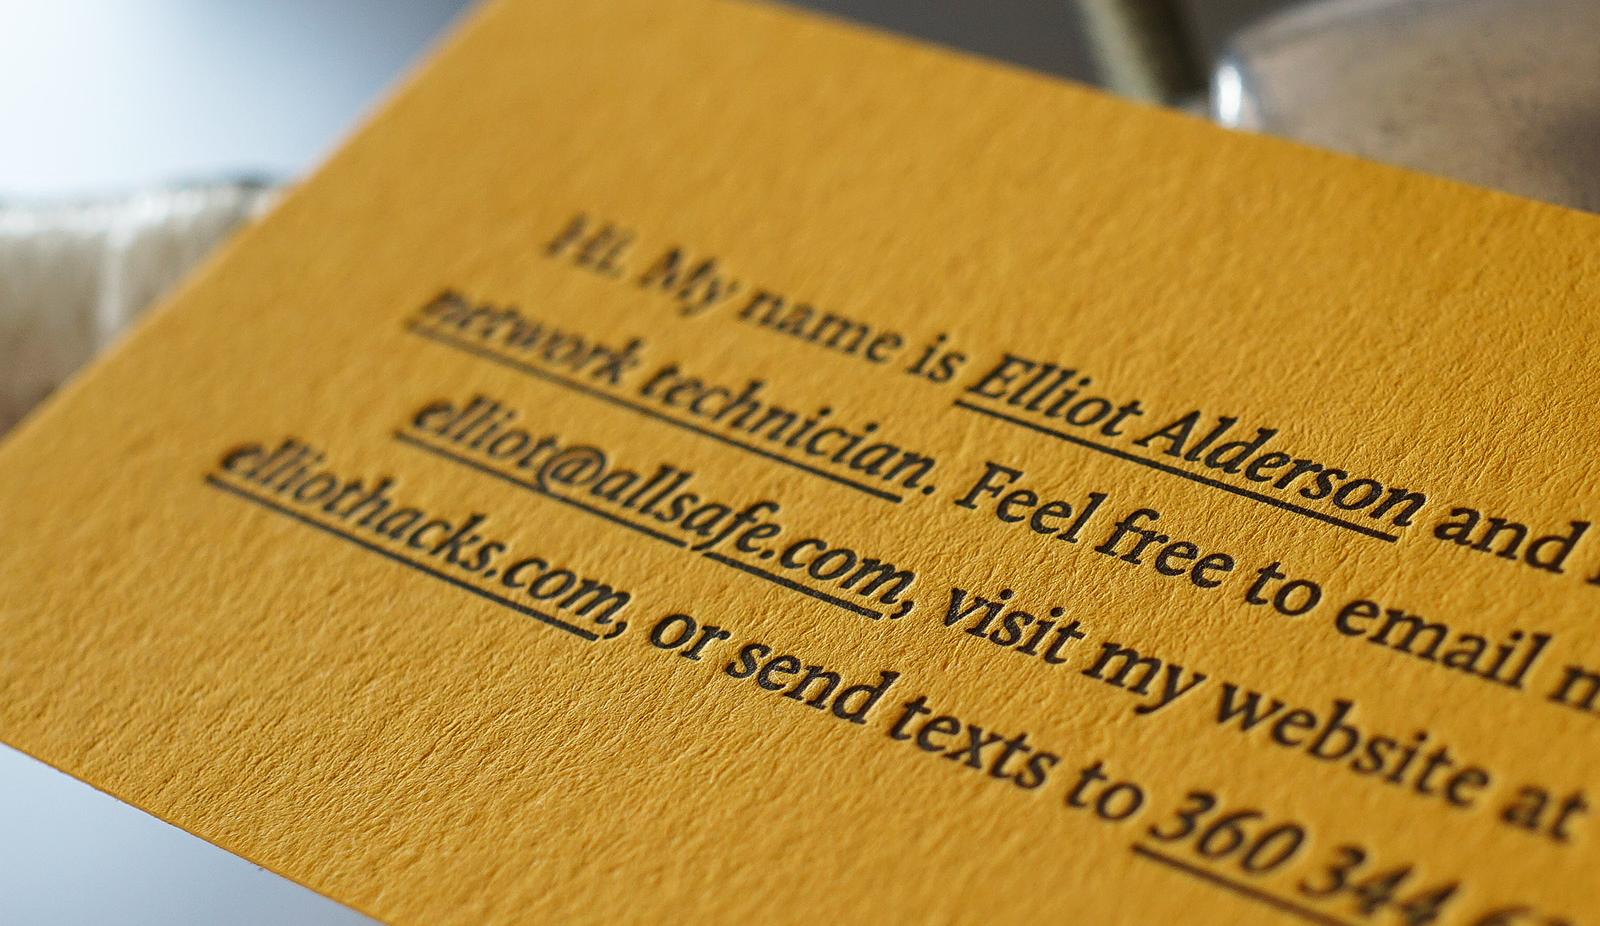 Hi. My name is Elliot Alderson and
network technician. Feel free to email
elliot@allsafe.com, visit my website at
elliothacks.com, or send texts to 360 344